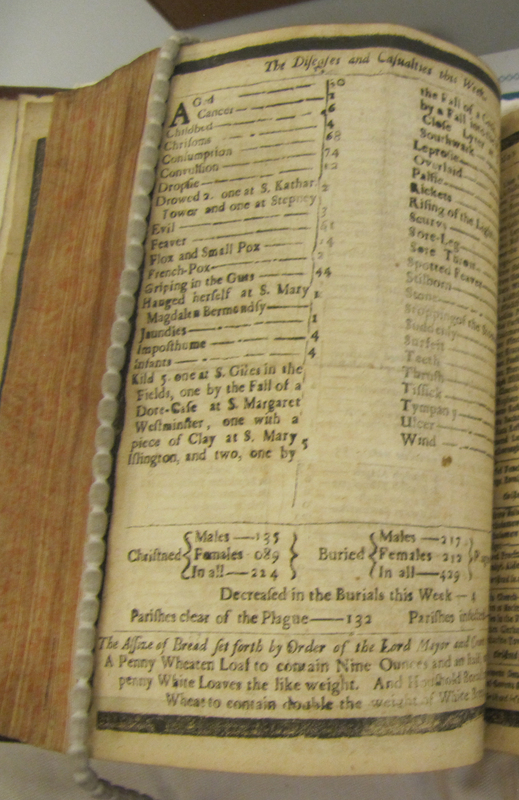 The Diseases and Casualties this Week.
AGed
Cancer
Childbed 6
Chrisoms 4
Consumption 68
Convulsion 74
Dropsie 12
Drowed 2. one at S. Kathar. 2
Tower and one at Stepney
Evil 3
Feaver 61
Flox and Small Pox 14
French-Pox
Griping in the Guts 44
Hanged herself at S. Mary
Magdalen Bermondsy 1
Jaundies 1
Imposthume 4
Infants 4
Kild 5. one at S. Giles in the
Fields, one by the Fall of a
Dore-Case at S. Margaret
Westminster, one with a
piece of Clay at S. Mary 5
Islington, and two, one by
the Fall of a
by a Fall
Southwark
Leprosie
Overlaid
Palsie
Rickets
Rising of the Lights
Scurvy
Sore-Leg
Sore
Spotted Feaver
Stilborn
Stone
Stopping of the
Suddenly
Surfeit
Teeth
Thrush
Tissick
Tympany
Ulcer
Wind
Christned { Males — 135 Females 089 In all — 224 } Buried { Males — 217 Females 212 In all — 429 }
Decreased in the Burials this Week —
Parishes clear of the Plague — 132 Parishes infected
The Assize of Bread set forth by Order of the Lord Mayor and
A Penny Wheaten Loaf to contain Nine Ounces and an half,
penny White Loaves the like weight. And Houshold
Wheat to contain double the weight of White